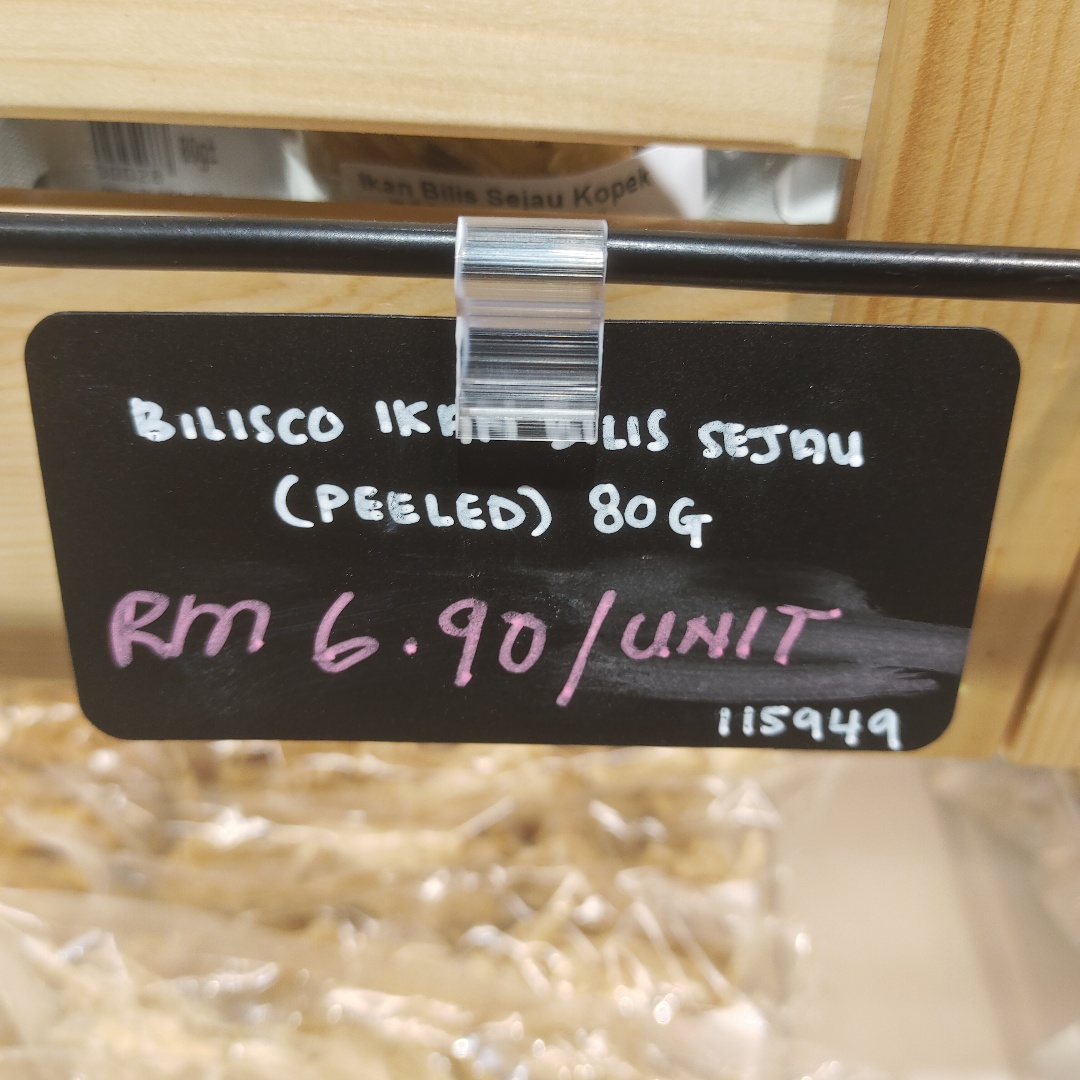 80g±
Ikan Bilis Sejau Kopek
BILISCO IKAN BILIS SEJAU
(PEELED) 80G
RM 6.90/UNIT
115949